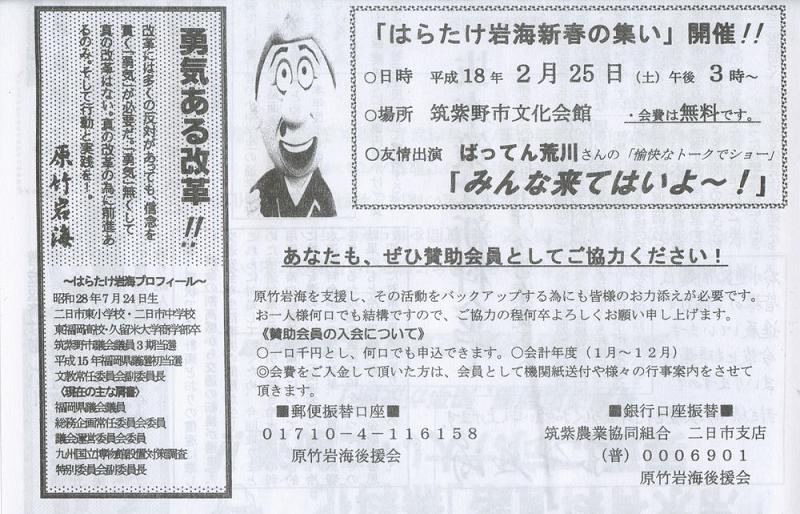 勇気ある改革!!
改革には多くの反対があっても、信念を
貫く「勇気」が必要だ。「勇気」無くして
真の改革はない。真の改革の為に前進あ
るのみ。そして行動と実践を!。
原竹岩海
~はらたけ岩海プロフィール~
昭和28年7月24日生
二日市東小学校・二日市中学校
東福岡高校・久留米大学商学部卒
筑紫野市議会議員3期当選
平成15年福岡県議選初当選
文教常任委員会副委員長
〈現在の主な肩書〉
福岡県議会議員
総務企画常任委員会委員
議会運営委員会委員
九州国立博物館設置対策調査
特別委員会副委員長
「はらたけ岩海新春の集い」開催!!
○日時 平成18年2月25日(土)午後3時~
○場所 筑紫野市文化会館 ・会費は無料です。
○友情出演 ばってん荒川さんの「愉快なトークでショー」
「みんな来てはいよ~!」
あなたも、ぜひ賛助会員としてご協力ください!
原竹岩海を支援し、その活動をバックアップする為にも皆様のお力添えが必要です。
お一人様何口でも結構ですので、ご協力の程何卒よろしくお願い申し上げます。
《賛助会員の入会について》
○一口千円とし、何口でも申込できます。○会計年度(1月~12月)
◎会費をご入金して頂いた方は、会員として機関紙送付や様々の行事案内をさせて
頂きます。
■郵便振替口座■
01710-4-116158
原竹岩海後援会
■銀行口座振替■
筑紫農業協同組合 二日市支店
(普)0006901
原竹岩海後援会